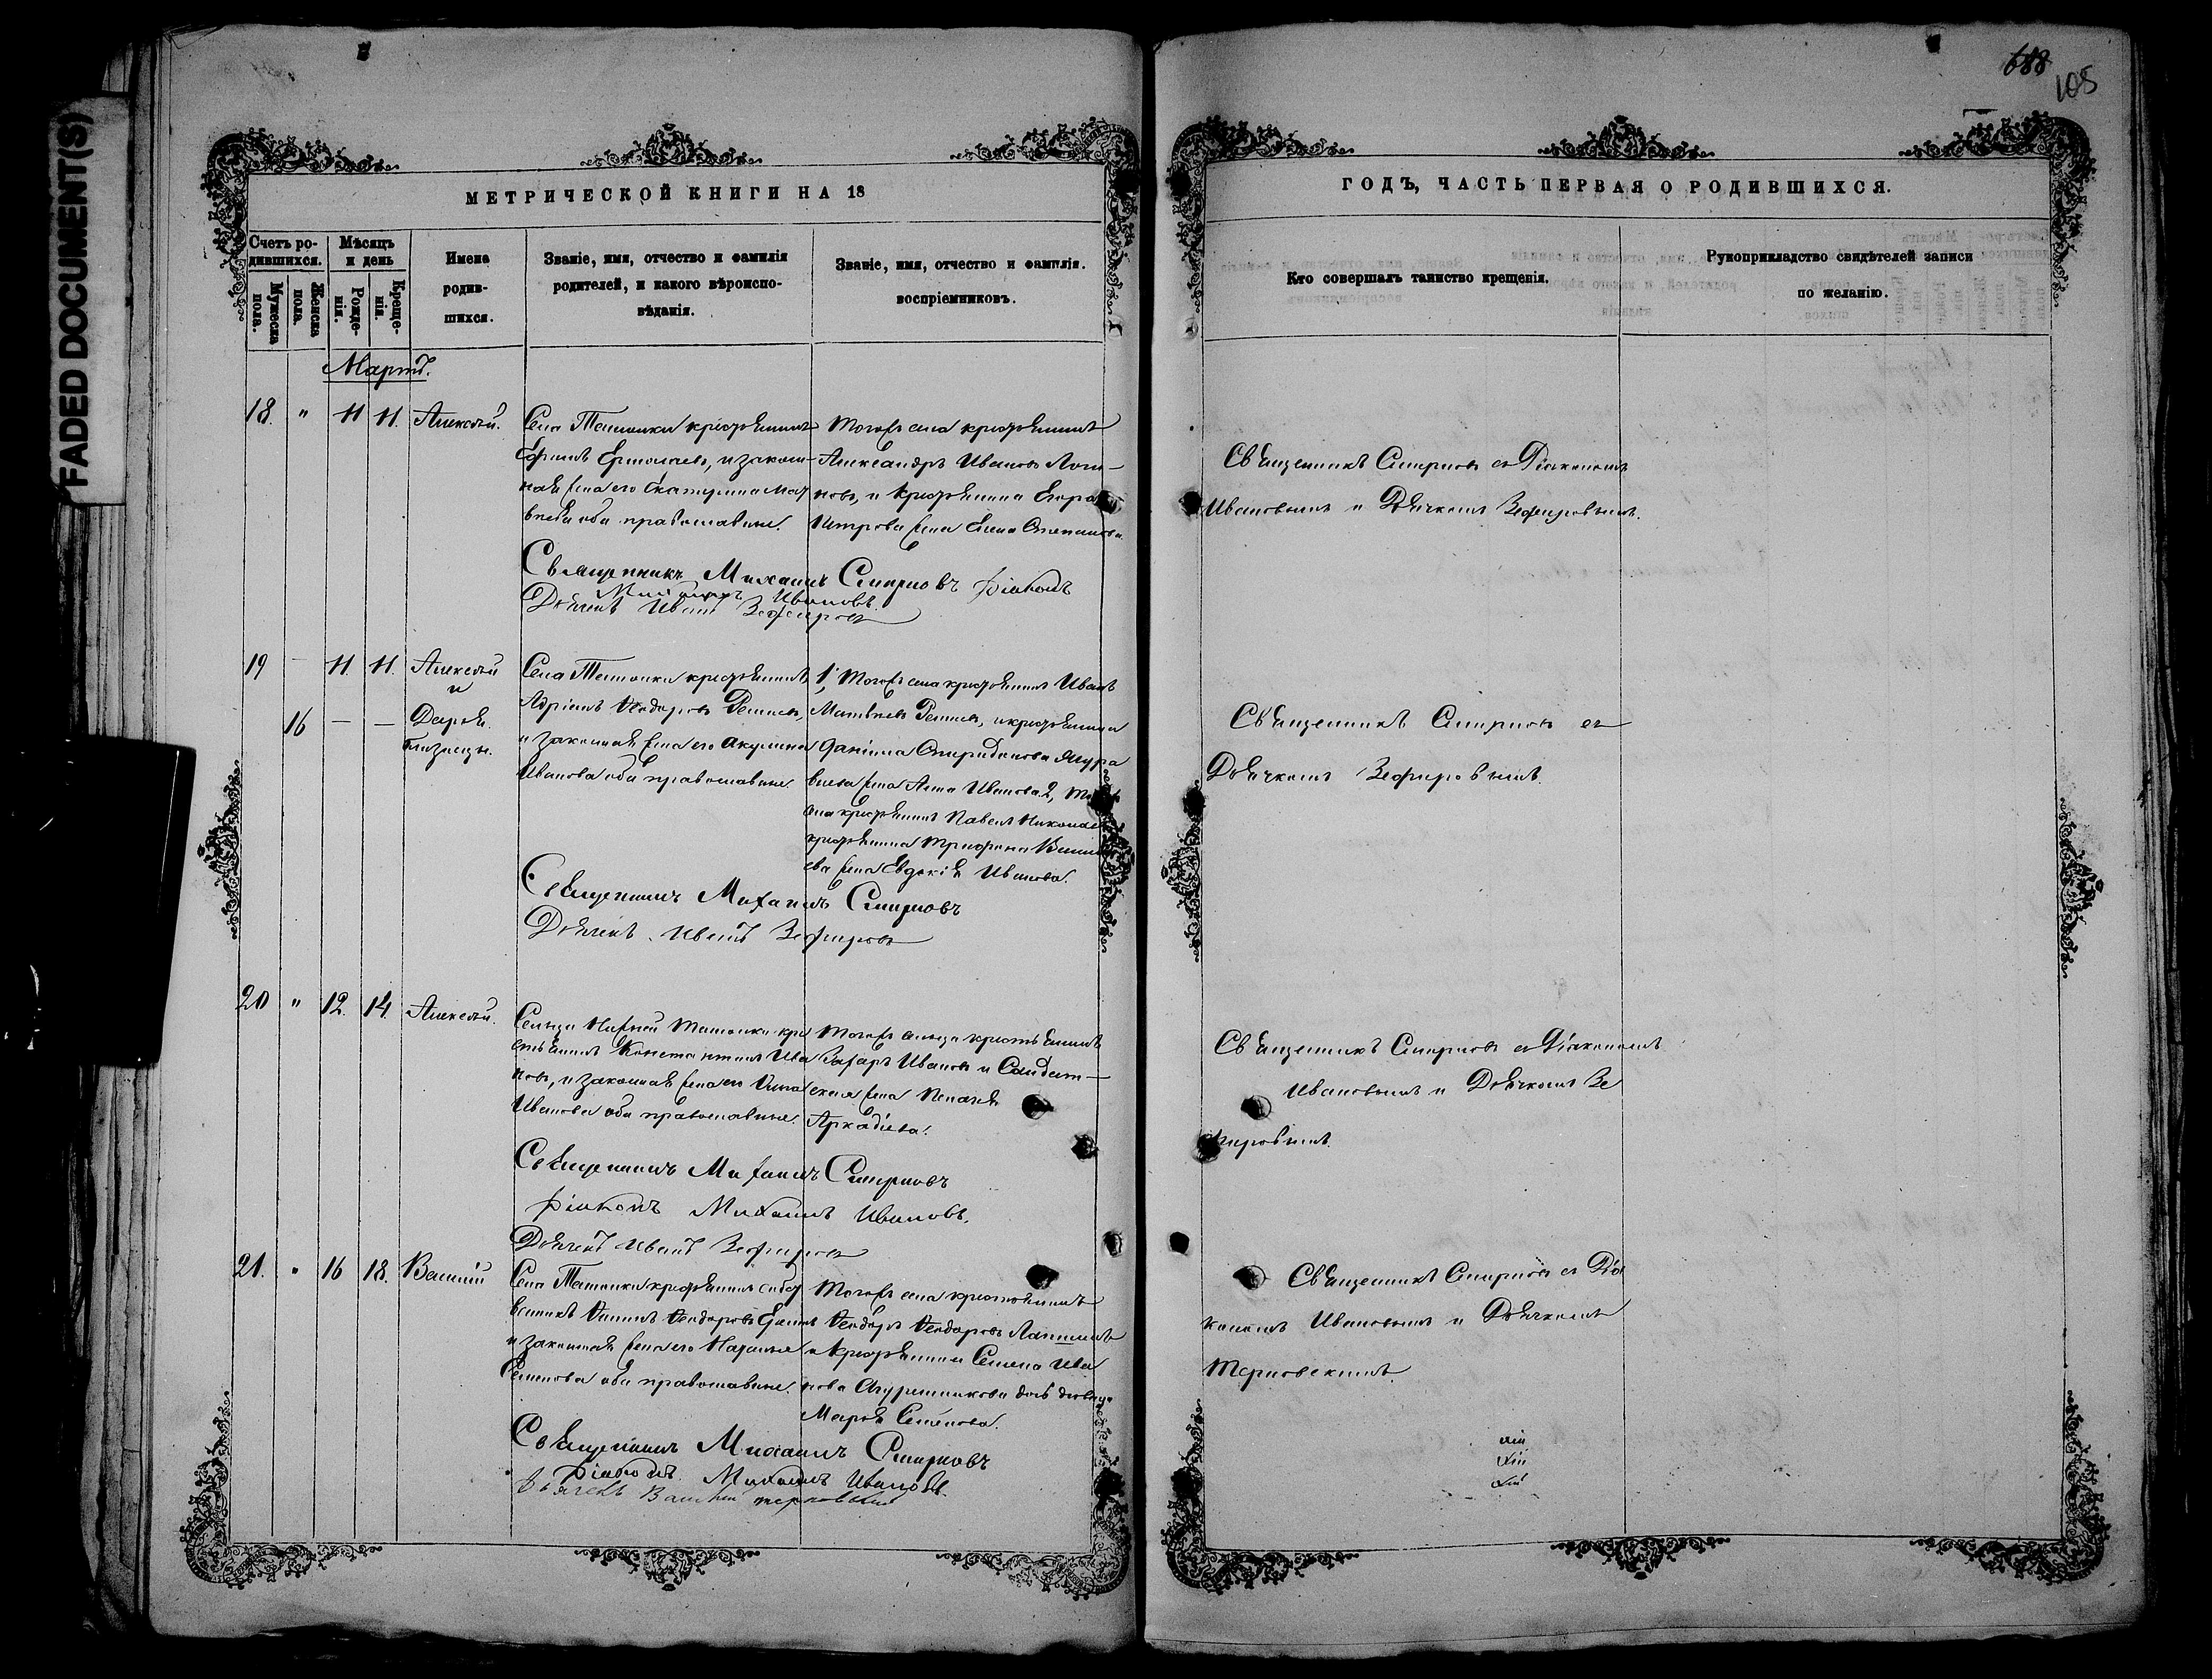 FADED DOCUMENT(S)
688
105
МЕТРИЧЕСКОЙ КНИГИ НА 18
Счетъ ро-
дившихся.
Мужеска
пола.
Женска
пола.
Мѣсяцъ
и день
Рожде-
нія.
Креще-
нія.
Имена
родив-
шихся.
Званіе, имя, отчество и фамилія
родителей, и какого вѣроиспо-
вѣданія.
Званіе, имя, отчество и фамилія.
воспріемниковъ.
Мартъ.
18. " 11 11. Алексѣй.
Села крестьянинъ
Ермолаевъ, и закон-
ная жена его Екатерина Мат
вѣева оба православные.
Тогожъ села крестьянинъ
Александръ Ивановъ Логи-
новъ, и крестьянина Егора
Петрова жена Елена Степанова.
Священникъ Михаилъ Смирновъ Діаконъ
Михаилъ Ивановъ.
Дьячекъ Иванъ Зефировъ
19 — 11. 11. Алексѣй
и
16 — — Дарья.
близнецы.
Села крестьянинъ
Адріанъ Ѳеодоровъ
и законная жена его Акулина
Иванова оба православные.
1, Тогожъ села крестьянинъ Иванъ
Матвѣевъ и крестьянина
Даніила Спиридонова Жура
влева жена Анна Иванова 2, Того
села крестьянинъ Павелъ Никола
крестьянина Трифона
ева жена Евдокія Иванова.
Священникъ Михаилъ Смирновъ
Дьячекъ Иванъ Зефировъ
20 " 12. 14. Алексѣй.
Сельца Нижней кре
стьянинъ Константинъ Ива
новъ, и законная жена его
Иванова оба православные.
Тогожъ сельца крестьянинъ
Захаръ Ивановъ и Солдат-
ская жена Пелагея
Аркадіева.
Священникъ Михаилъ Смирновъ
Діаконъ Михаилъ Ивановъ.
Дьячекъ Иванъ Зефировъ
21. " 16 18. Василій
Села крестьянинъ
Ѳеодоровъ
и законная жена его Наталья
Семенова оба православные.
Тогожъ села крестьянинъ
Ѳеодоръ Ѳеодоровъ Лапшинъ
и крестьянина Семена Ива
нова дочь дѣвица
Марья Семенова.
Священникъ Михаилъ Смирновъ
Діаконъ Михаилъ Ивановъ.
Дьячекъ Василій Терновскій
ГОДЪ, ЧАСТЬ ПЕРВАЯ О РОДИВШИХСЯ.
Кто совершалъ таинство крещенія.
Рукоприкладство свидѣтелей записи
по желанію.
Священникъ Смирновъ съ Діакономъ
Ивановымъ и Дьячкомъ Зефировымъ.
Священникъ Смирновъ съ
Дьячкомъ Зефировымъ
Священникъ Смирновъ съ Діакономъ
Ивановымъ и Дьячкомъ Зе
фировымъ.
Священникъ Смирновъ съ Діа
кономъ Ивановымъ и Дьячкомъ
Терновскимъ.